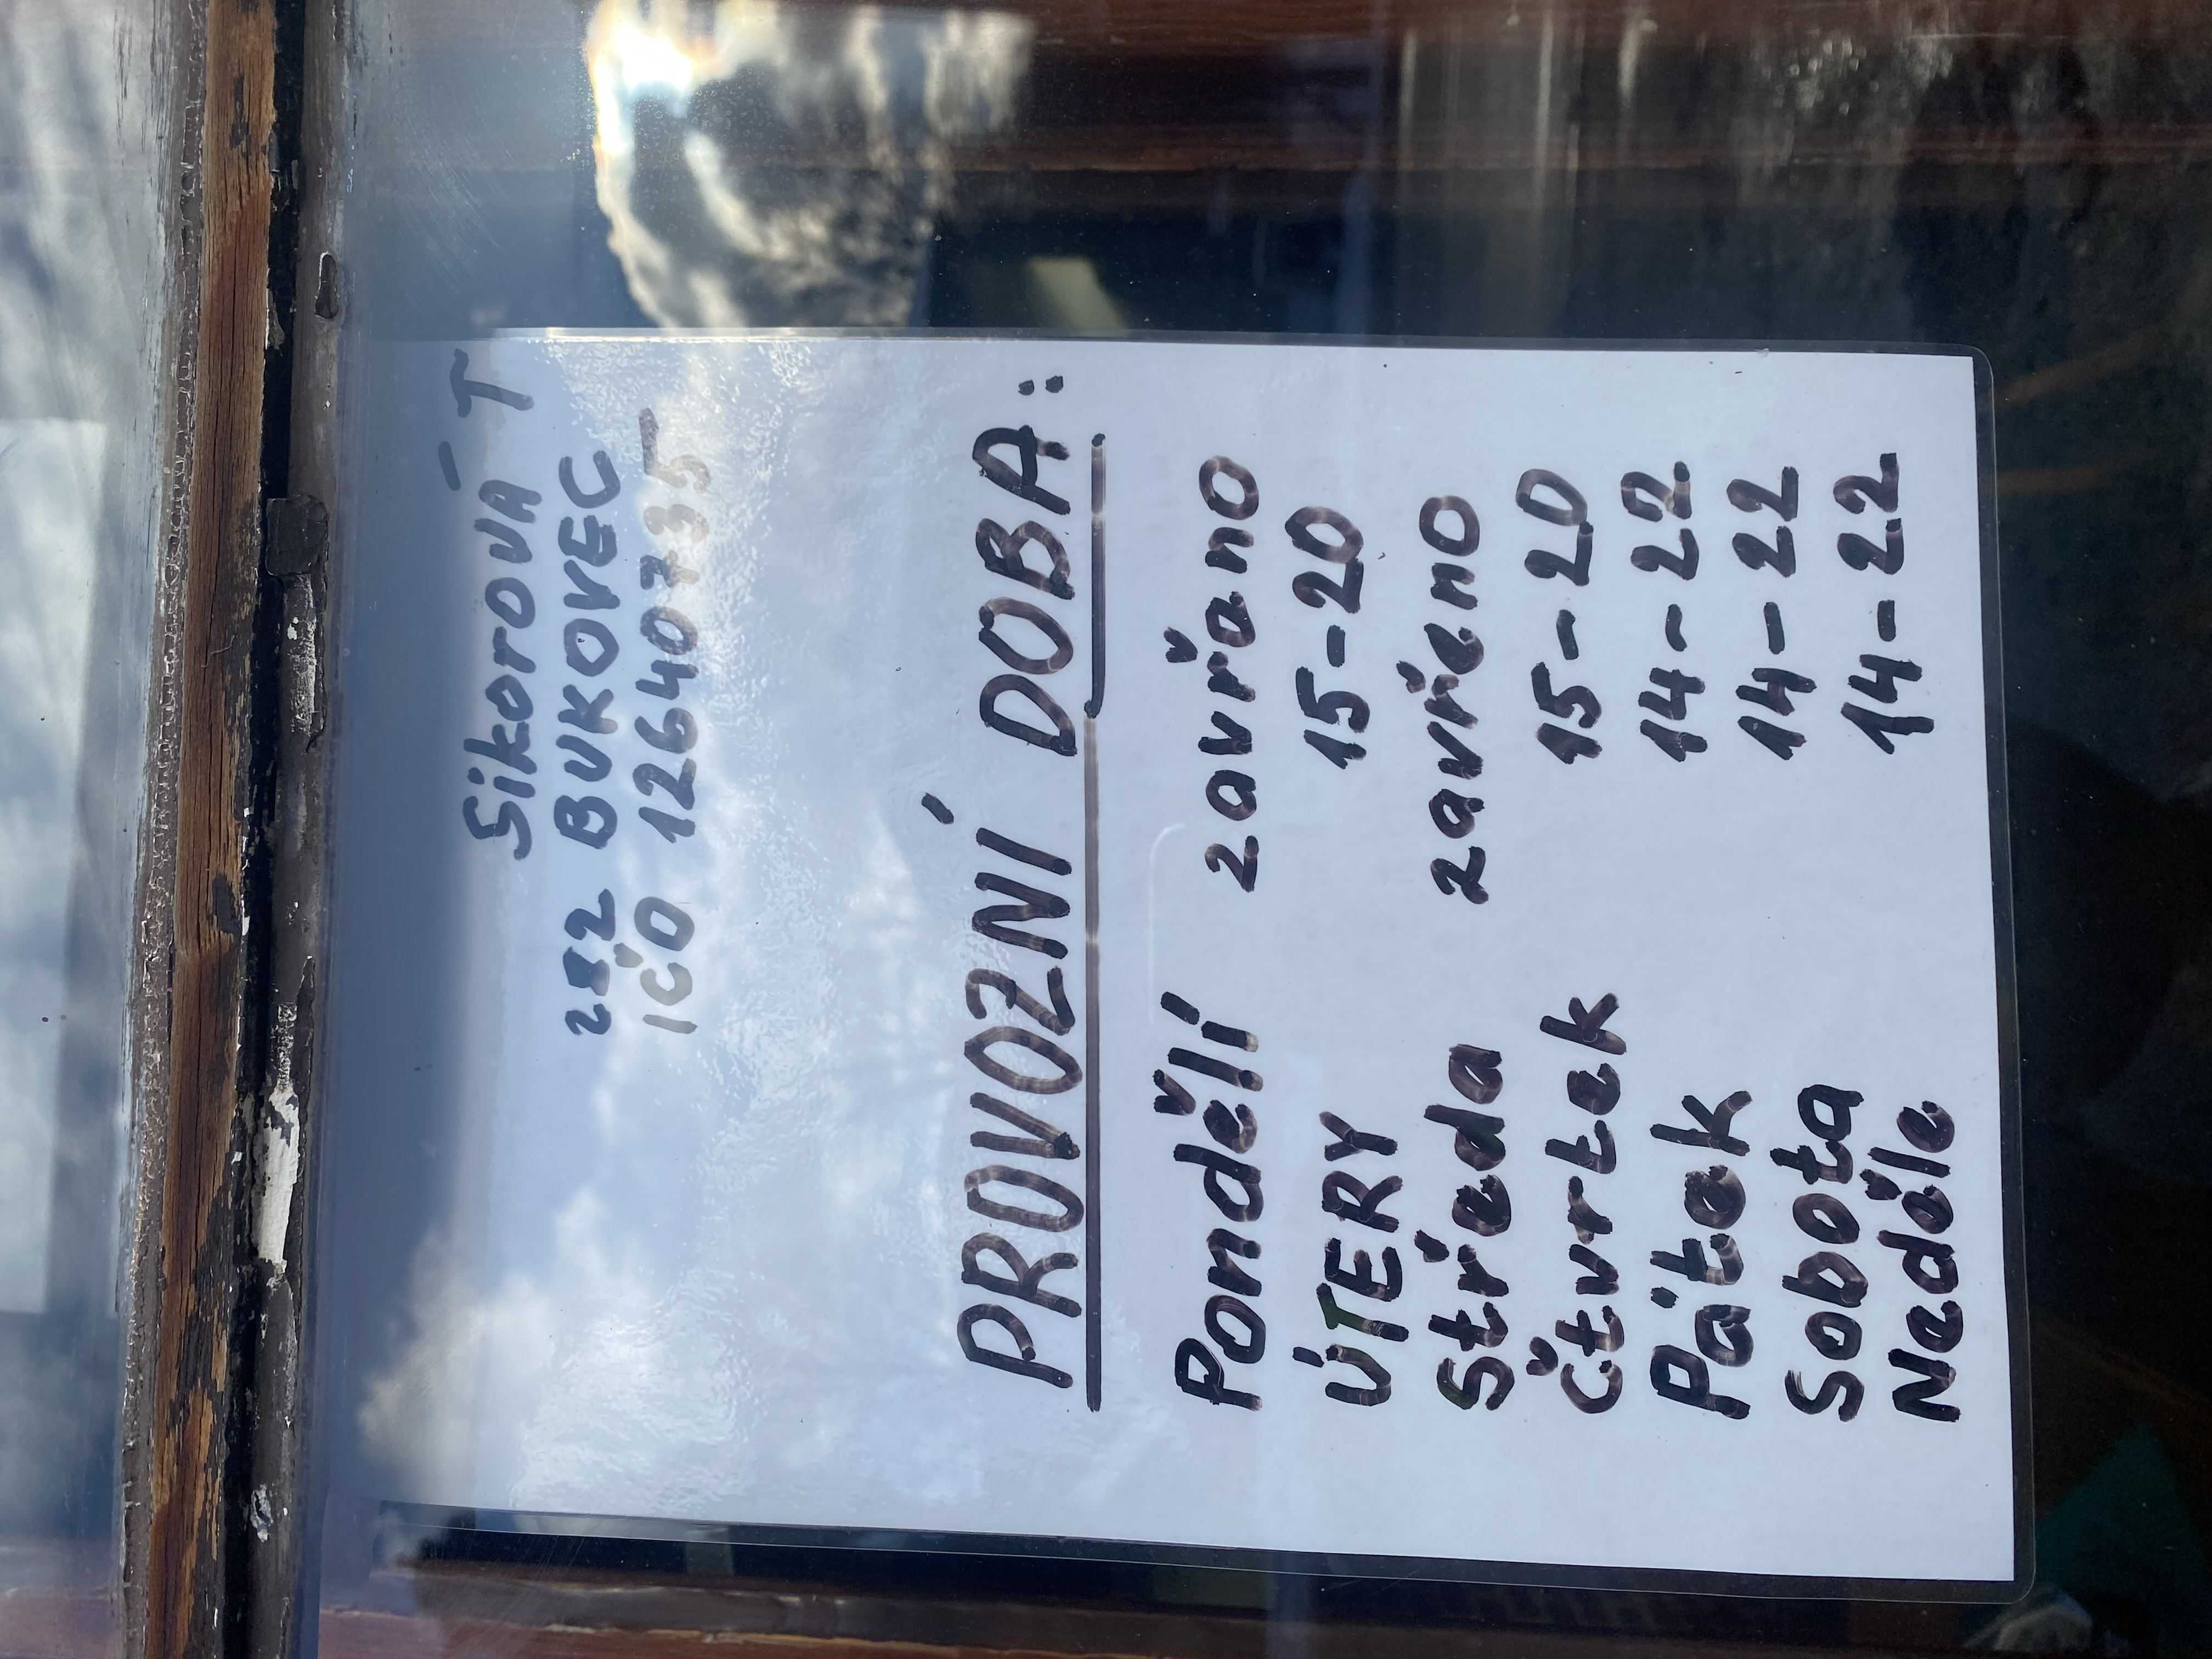 Sikorová T
252 BUKOVEC
IČO 12640735
PROVOZNÍ DOBA:
Pondělí zavřeno
ÚTERY 15-20
Středa zavřeno
Čtvrtek 15-20
Pátek 14-22
Sobota 14-22
Neděle 14-22